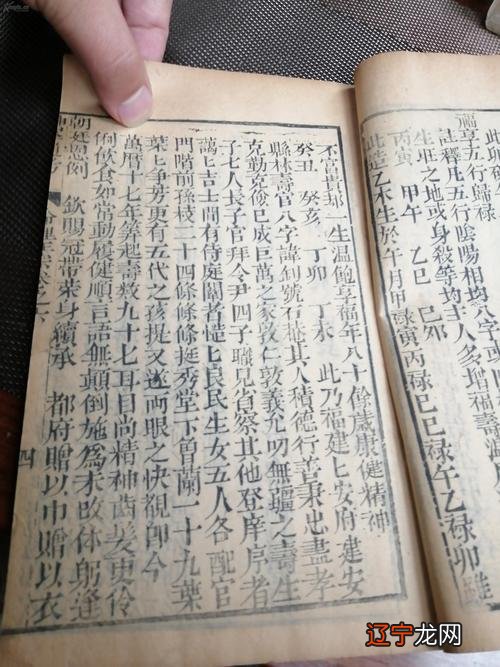 福享五行歸祿
註釋凡五行陰陽相均
生旺之地或身殺等均主人多增福壽
丙寅 甲午 乙巳 己卯
此造乙木生於午月甲祿寅丙祿巳巳祿午乙祿卯雖
不富貴却一生溫飽享福年八十餘歲康健精神
癸丑 癸亥 丁卯 丁未 此乃福建上安府建安
縣林壽官八字諱釗號石巷其人積德行善秉忠盡孝
克勤克儉已成巨萬之家敦仁敦義允叨無疆之壽生
子七人長子官拜令尹四子職見省祭其他登庠序者
萬上吉士間有侍庭闈者惜上良民生女五人各配官
門階前孫枝二十四條條條挺秀堂下角蘭二十九葉
葉上爭芳更有五代之孩提又遂兩眼之快覩卽今
萬曆十七年等起壽數九十七耳目尚精神齒髮更伶
俐飲食如常動履健順言語無顛倒施為未改体躬逢
朝廷恩例 欽賜冠帶榮身續承 都府贈以巾贈以衣
四
辽宁龙网